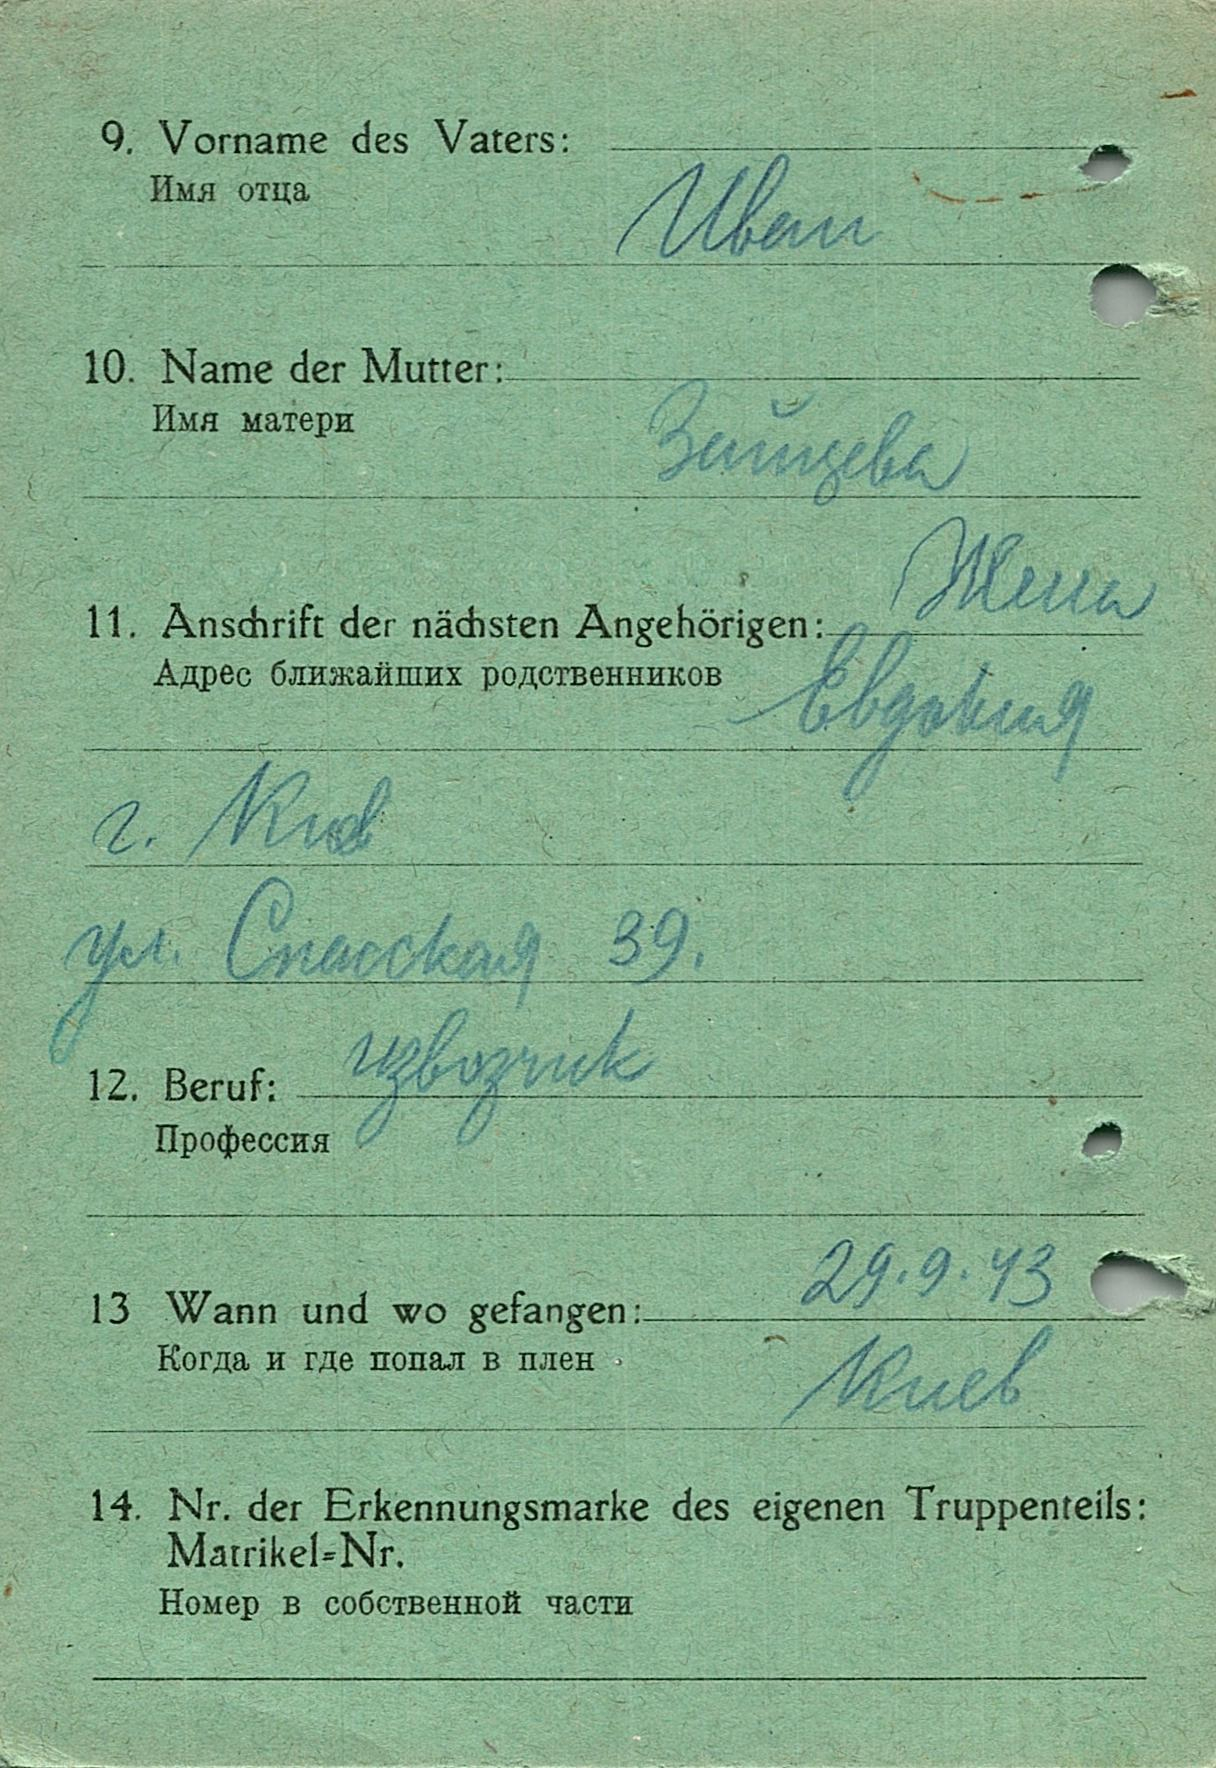 9. Vorname des Vaters:
Имя отца
Иван
10. Name der Mutter:
Имя матери
Зайцева
Жена
11. Anschrift der nächsten Angehörigen:
Адрес ближайших родственников
Евдокия
г. Киев
ул. Спасская 39.
извозчик
12. Beruf:
Профессия
29.9.43
13 Wann und wo gefangen:
Когда и где попал в плен
Киев
14. Nr. der Erkennungsmarke des eigenen Truppenteils:
Matrikel=Nr.
Номер в собственной части